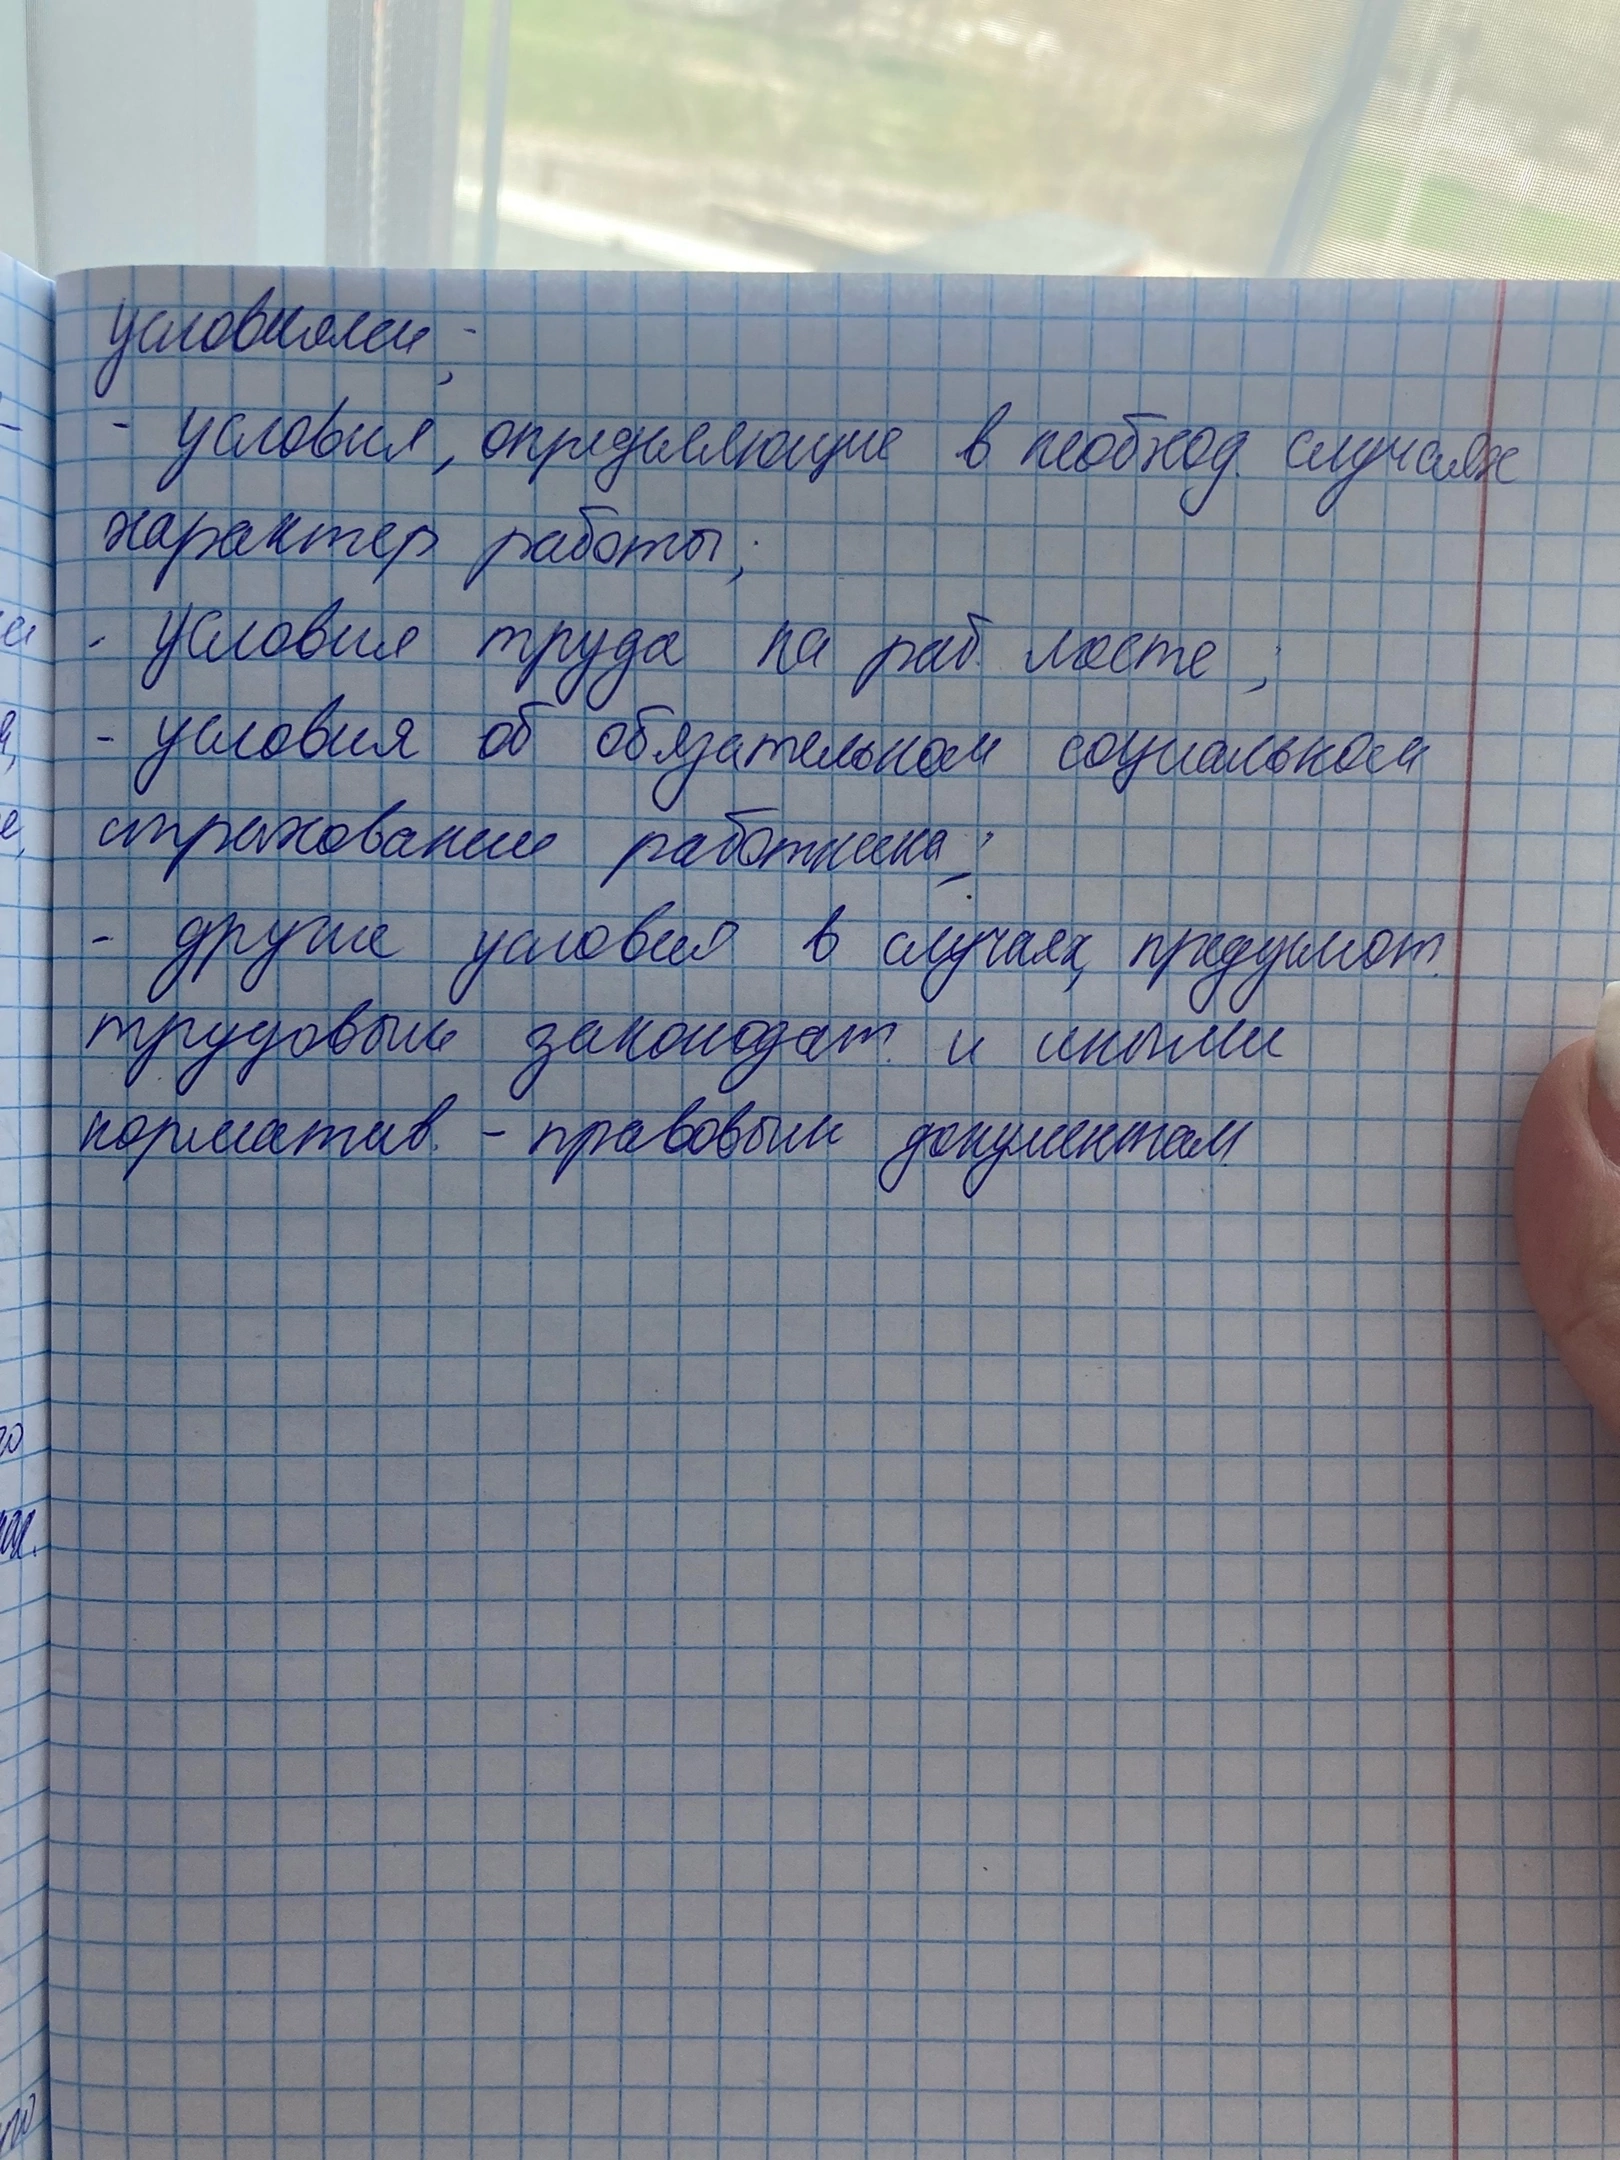 условиями;
- условия, определяющие в необход. случаях
характер работы;
- условия труда на раб. месте;
- условия об обязательном социальном
страховании работника;
- другие условия в случаях, предусмот.
трудовым законодат. и иными
норматив. - правовым документам.